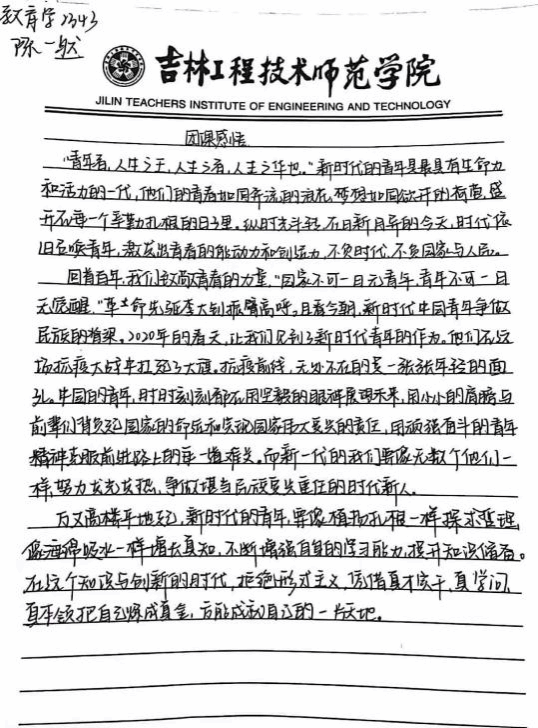 教育学2343
陈一然
吉林工程技术师范学院
JILIN TEACHERS INSTITUTE OF ENGINEERING AND TECHNOLOGY
团课感悟
"青年者,人生之王,人生之春,人生之华也。"新时代的青年是最具有生命力
和活力的一代,他们的青春如同奔流的浪花,梦想如同欲开的荷苞,盛
开在每一个辛勤扎根的日子里。纵时光斗转,在日新月异的今天,时代依
旧召唤青年,激发出青春的能动力和创造力,不负时代,不负国家与人民。
回首百年,我们致敬青春的力量,"国家不可一日无青年,青年不可一日
无觉醒,"革命先驱李大钊振臂高呼。且看今朝,新时代中国青年争做
民族的脊梁。2020年的春天,让我们见到了新时代青年的作为。他们在这
场抗疫大战中扛起了大旗。抗疫前线,无处不在的是一张张年轻的面
孔。中国的青年,时时刻刻都在用坚毅的眼神展现未来,用小小的肩膀与
前辈们背负起国家的命运和实现国家伟大复兴的责任,用顽强奋斗的青年
精神克服前进路上的每一道难关。而新一代的我们要像无数个他们一
样,努力发光发热,争做堪当民族复兴重任的时代新人。
万丈高楼平地起,新时代的青年,要像植物扎根一样探求哲理,
像海绵吸水一样增长真知,不断增强自身的学习能力,提升知识储备。
在这个知识与创新的时代,拒绝形式主义,凭借真才实干,真学问,
真本领把自己炼成真金,方能成就自己的一片天地。